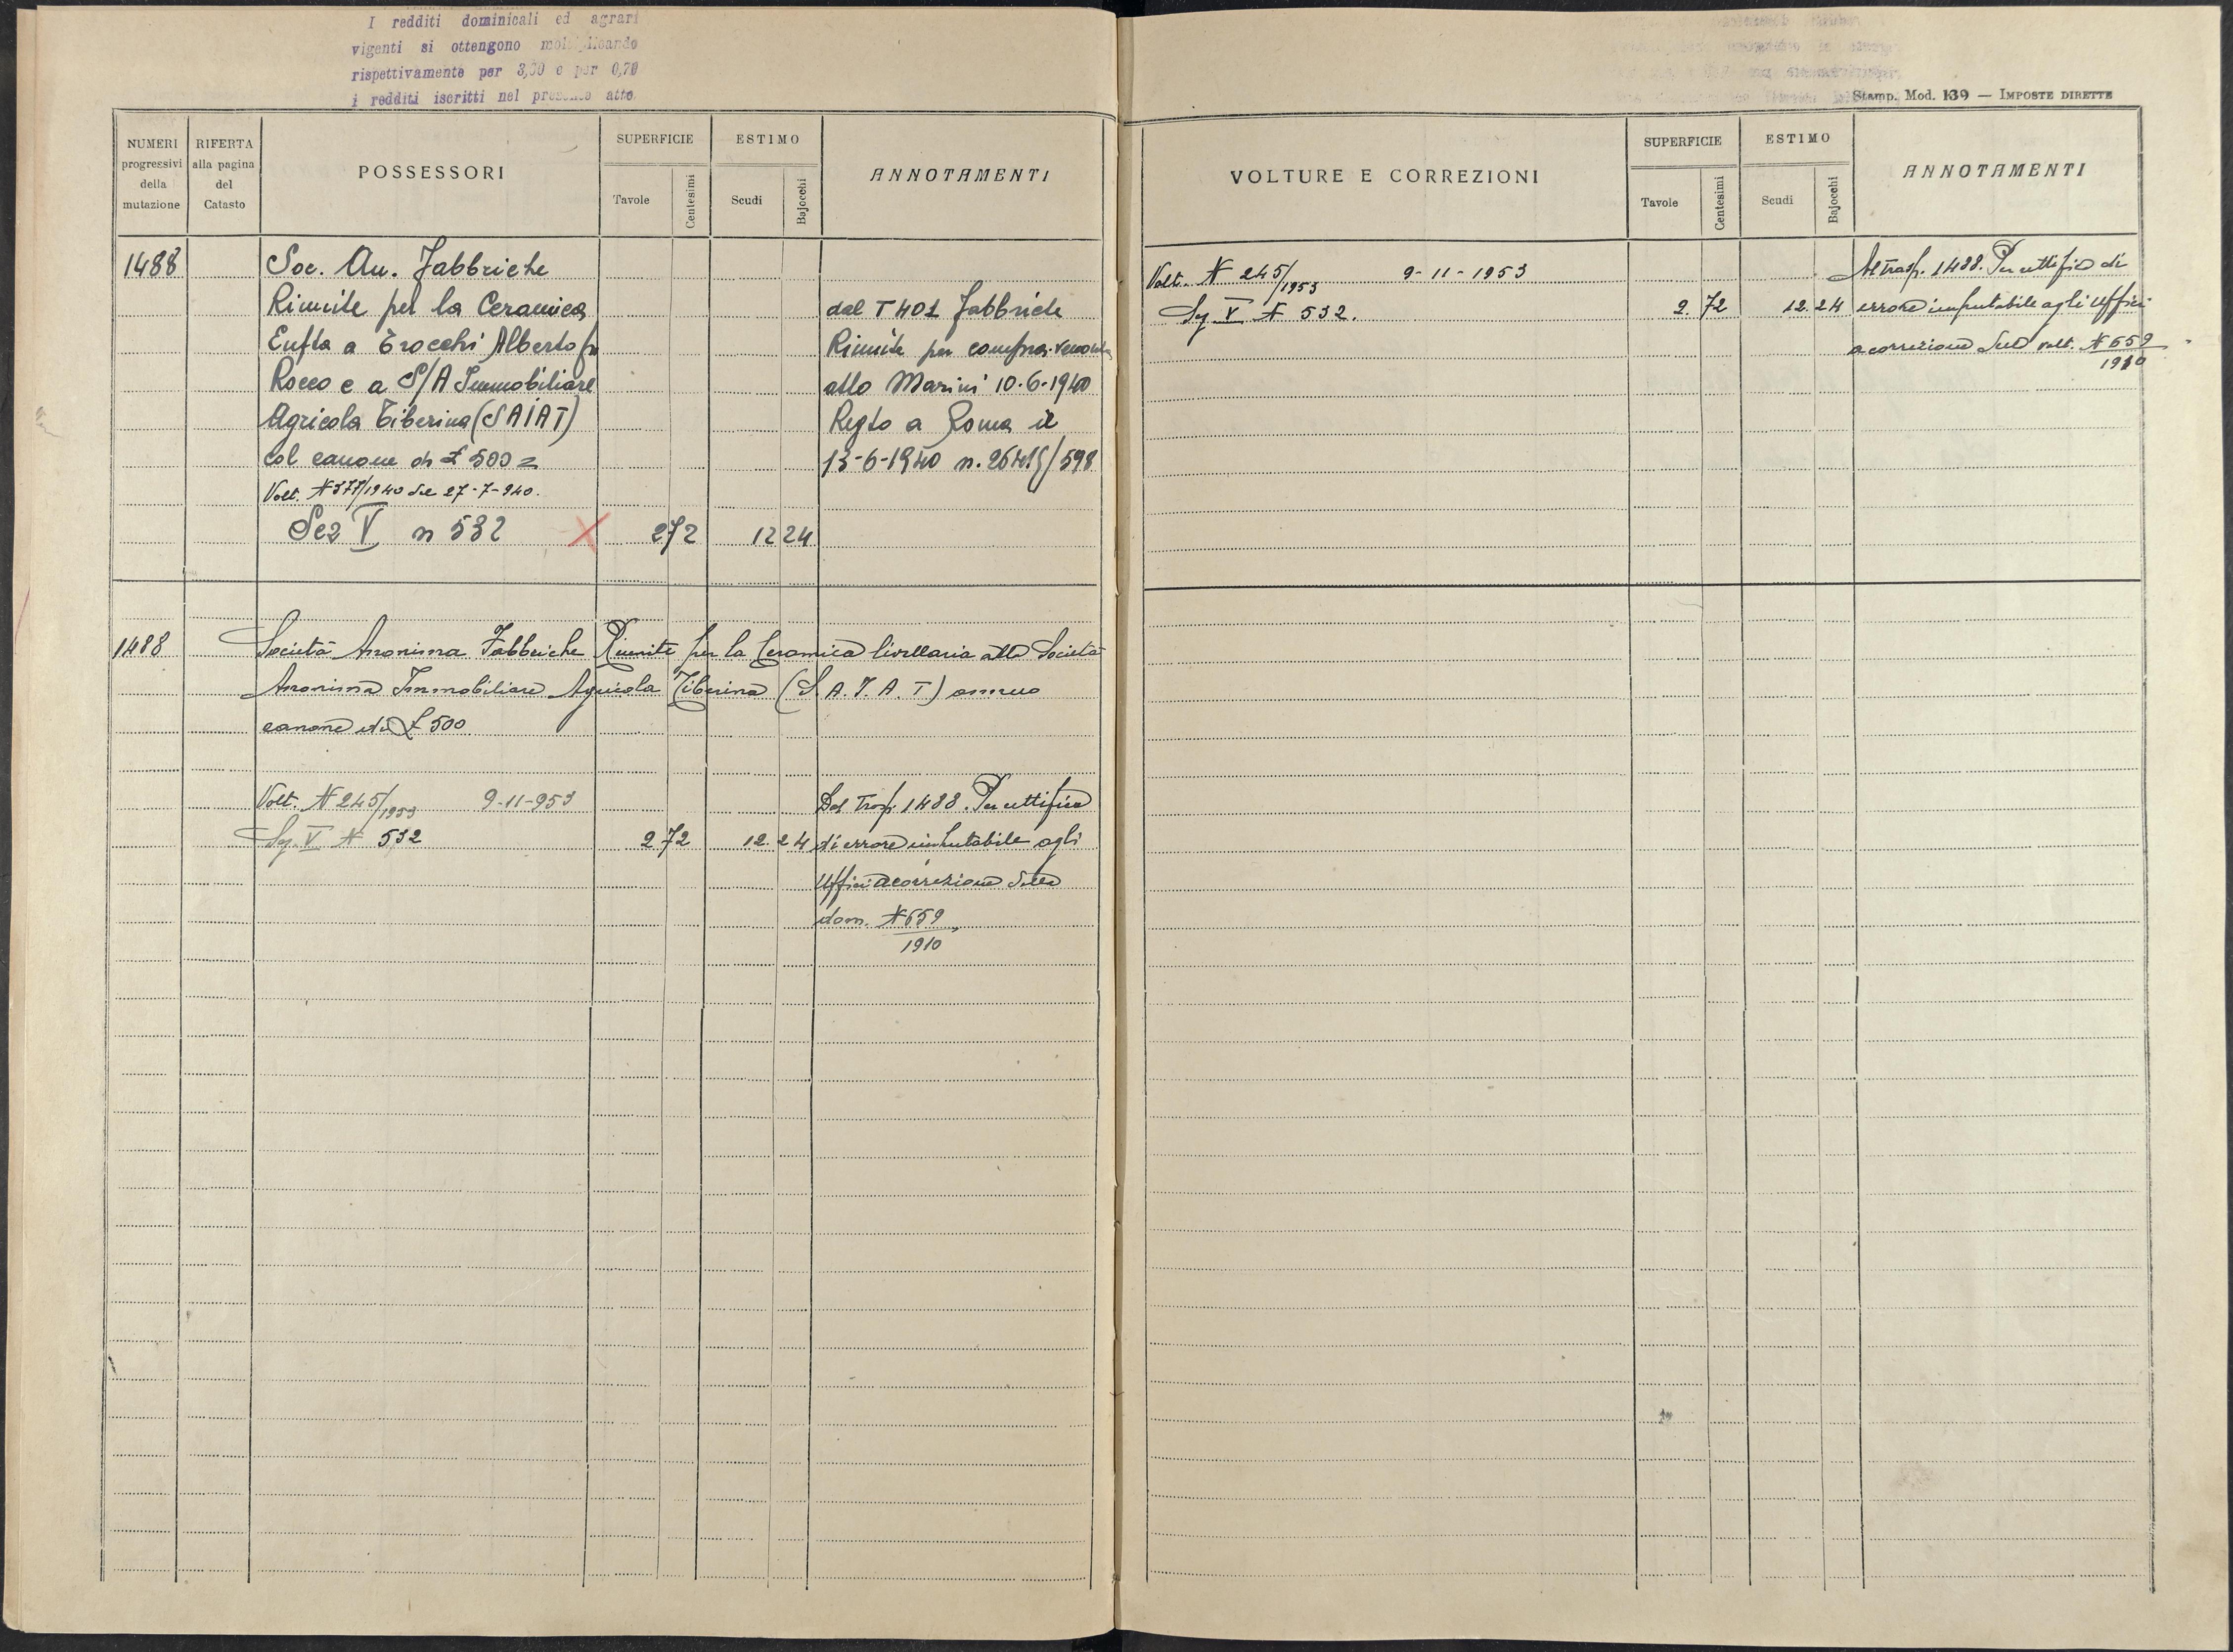 I redditi dominicali ed agrari
vigenti si ottengono moltiplicando
rispettivamente per 3,30 e per 0,70
i redditi iscritti nel presente atto
NUMERI progressivi della mutazione
RIFERTA alla pagina del Catasto
POSSESSORI
SUPERFICIE
Tavole
Centesimi
ESTIMO
Scudi
Bajocchi
ANNOTAMENTI
1488 Soc. An. Fabbriche
Riunite per la Ceramica
Eufta a Trocchi Alberto fu
Rocco e a S/A Immobiliare
Agricola Tiberina (SAIAT)
col canone di £ 500 =
Volt. N 377/1940 del 27-7-940.
Sez V n 532 X 2 72 12 24
dal T 401 Fabbriche
Riunite per compra-vendita
atto Marini 10-6-1940
Regto a Roma il
13-6-1940 n. 26415/598
1488 Società Anonima Fabbriche Riunite per la Ceramica livellaria alla Società
Anonima Immobiliare Agricola Tiberina (S. A. I. A. T) annuo
canone di £ 500
Volt. N 245/1953 9-11-953
Seg. V N 532 2 72 12.24
Dal Trasp. 1488. Per rettifica
di errore imputabile agli
Uffici a correzione della
dom. N 659
1910
Stamp. Mod. 139 — IMPOSTE DIRETTE
VOLTURE E CORREZIONI
SUPERFICIE
Tavole
Centesimi
ESTIMO
Scudi
Bajocchi
ANNOTAMENTI
Volt. N 245/1953 9-11-1953
Seg. V N 532. 2. 72 12.24
Al Trasp. 1488. Per rettifica di
errore imputabile agli Uffici
a correzione volt. N 659
1910